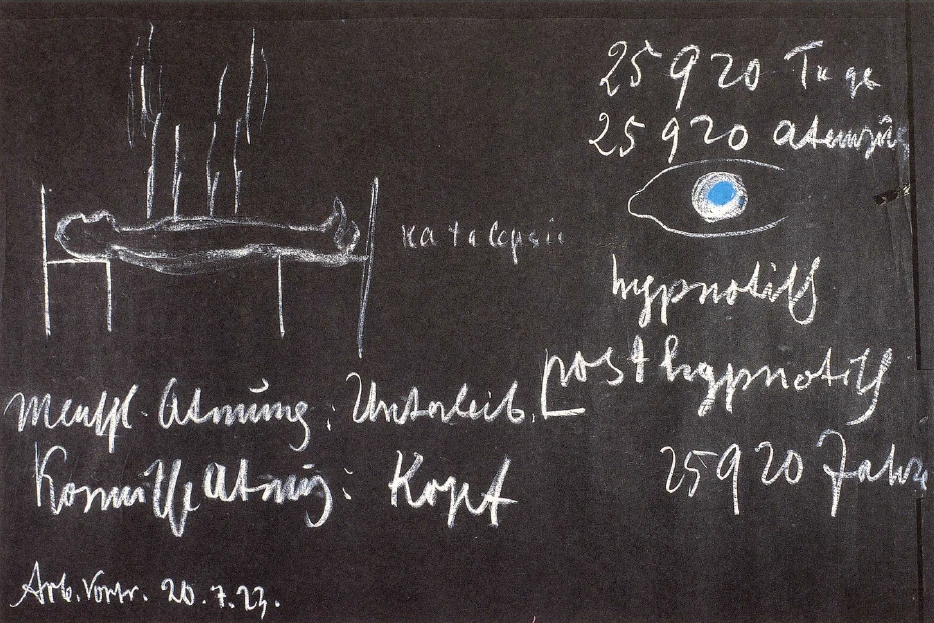 25920 Tage
25920 Atemzü
Katalepsie
hypnotisch
posthypnotisch
Menschl. Atmung: Unterleib.
Kosmische Atmung: Kopf
25920 Jahre
Arb. Vortr. 20.7.23.